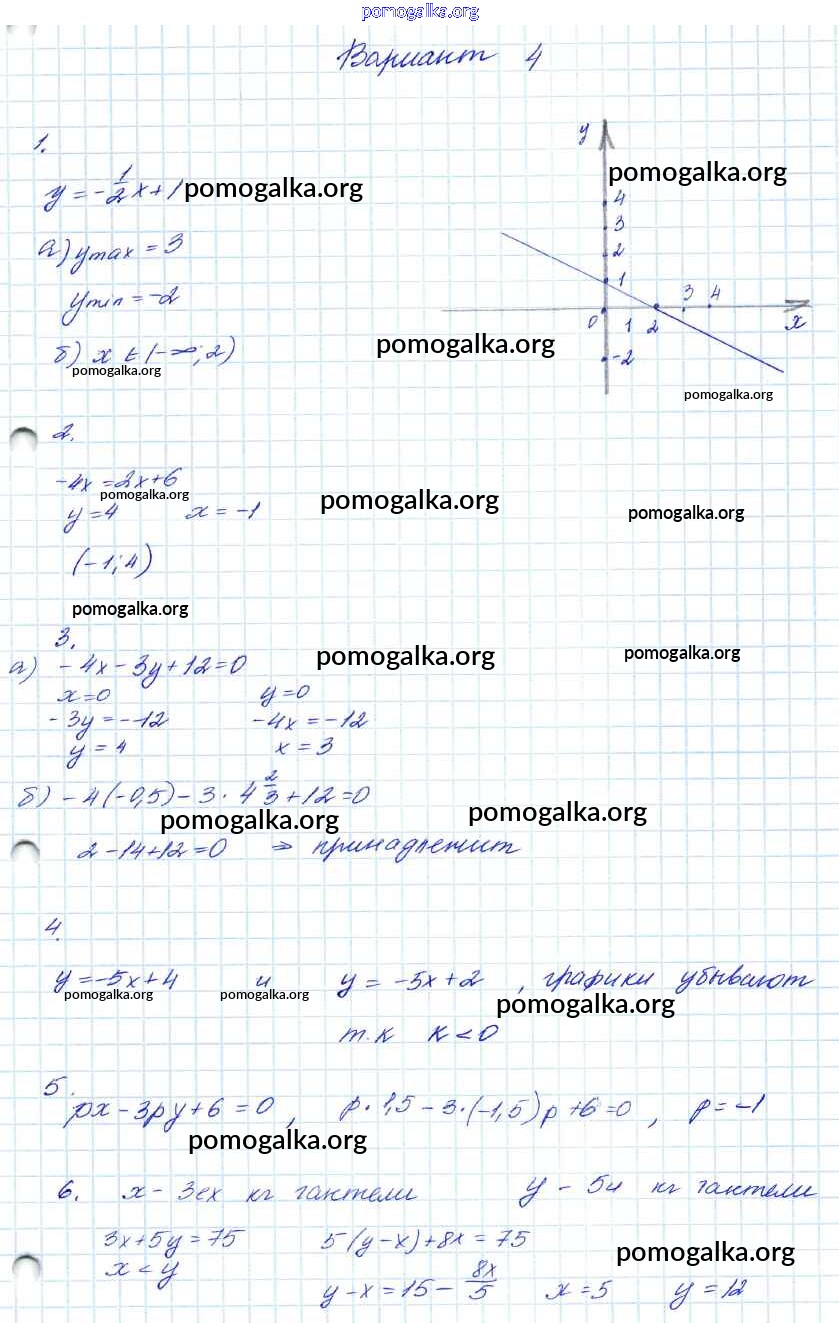 pomogalka.org
Вариант 4
1.
y = -1/2x+1
pomogalka.org
а) ymax = 3
ymin = -2
б) x ∈ (-∞; 2)
pomogalka.org
y
pomogalka.org
4
3
2
1
3 4
0 1 2 x
-2
pomogalka.org
pomogalka.org
2.
-4x = 2x+6
pomogalka.org
y = 4 x = -1
pomogalka.org
pomogalka.org
(-1; 4)
pomogalka.org
3.
а) -4x - 3y + 12 = 0
pomogalka.org
pomogalka.org
x = 0 y = 0
-3y = -12 -4x = -12
y = 4 x = 3
б) -4(-0,5) - 3 · 4 2/3 + 12 = 0
pomogalka.org
pomogalka.org
2 - 14 + 12 = 0 ⇒ принадлежит
4.
y = -5x+4 и y = -5x+2 , графики убывают
pomogalka.org
pomogalka.org
pomogalka.org
т.к K < 0
5.
px - 3py + 6 = 0 , p · 1,5 - 3 · (-1,5)p + 6 = 0 , p = -1
pomogalka.org
6. x - 3ех кг гантели y - 5и кг гантели
3x + 5y = 75 5(y-x) + 8x = 75
pomogalka.org
x < y
y - x = 15 - 8x/5 x = 5 y = 12